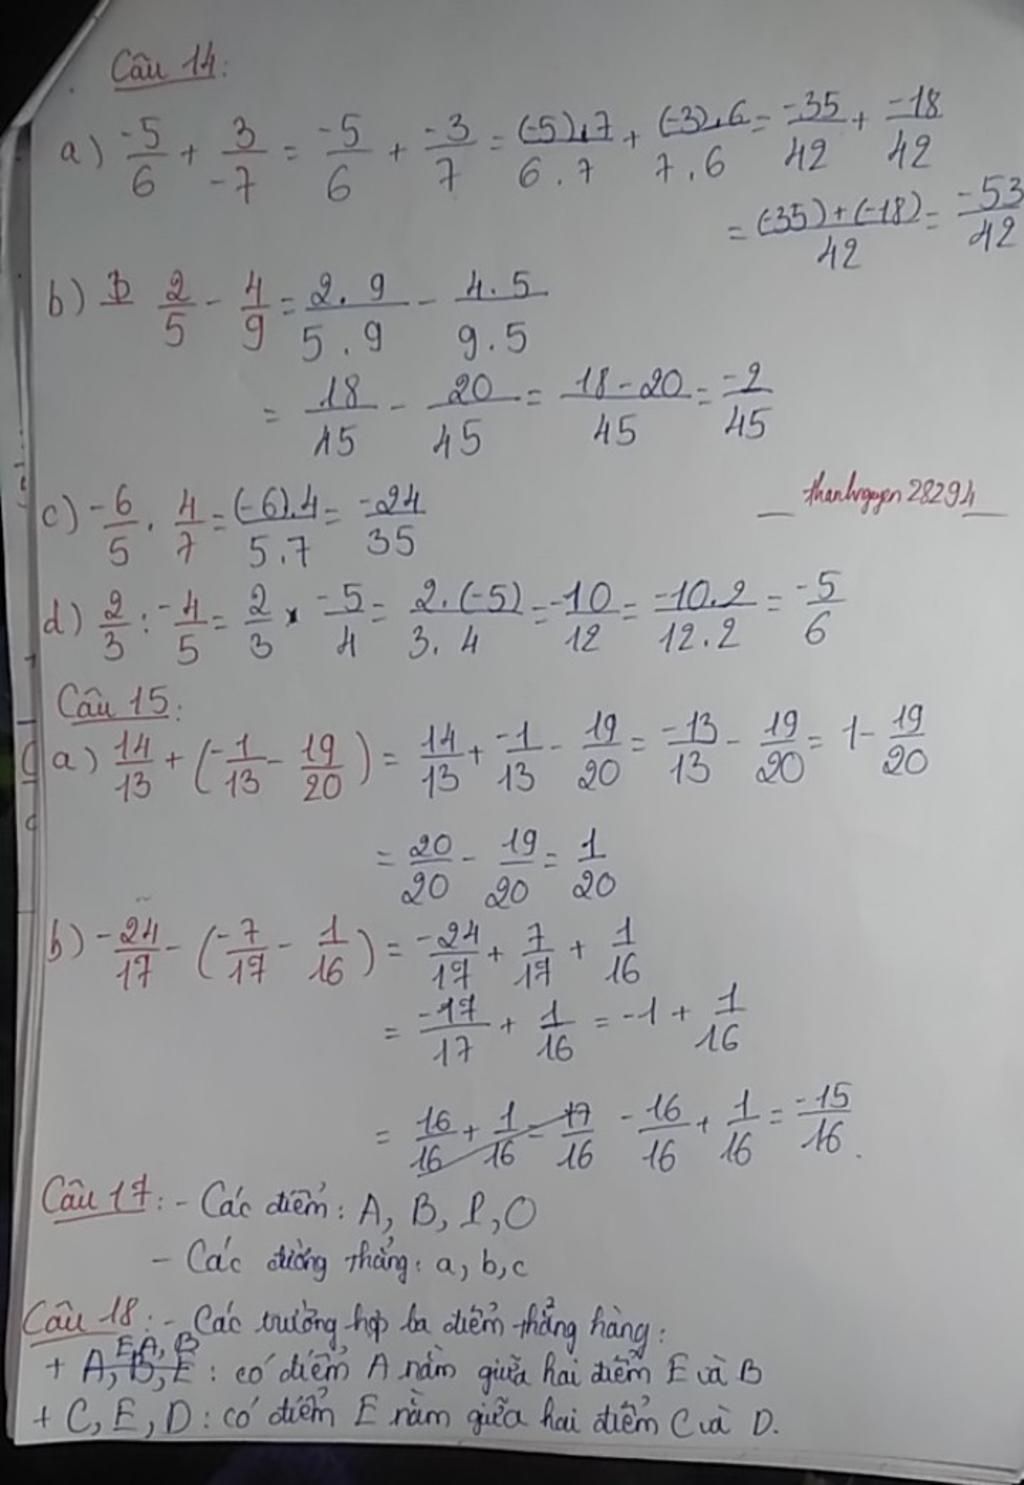 Câu 14:
a) -5/6 + 3/-7 = -5/6 + -3/7 = (-5).7/6.7 + (-3).6/7.6 = -35/42 + -18/42
= (-35)+(-18)/42 = -53/42
b) 2/5 - 4/9 = 2.9/5.9 - 4.5/9.5
= 18/45 - 20/45 = 18-20/45 = -2/45
c) -6/5 . 4/7 = (-6).4/5.7 = -24/35
thanhnguyen 28294
d) 2/3 : -4/5 = 2/3 × -5/4 = 2.(-5)/3.4 = -10/12 = -10.2/12.2 = -5/6
Câu 15:
a) 14/13 + (-1/13 - 19/20) = 14/13 + -1/13 - 19/20 = -13/13 - 19/20 = 1 - 19/20
= 20/20 - 19/20 = 1/20
b) -24/17 - (-7/17 - 1/16) = -24/17 + 7/17 + 1/16
= -17/17 + 1/16 = -1 + 1/16
= 16/16 + 1/16 = 17/16 -16/16 + 1/16 = -15/16.
Câu 17: - Các điểm: A, B, I, O
- Các đường thẳng: a, b, c
Câu 18: - Các trường hợp ba điểm thẳng hàng:
E, A, B
+ A, B, E : có điểm A nằm giữa hai điểm E và B
+ C, E, D : có điểm E nằm giữa hai điểm C và D.